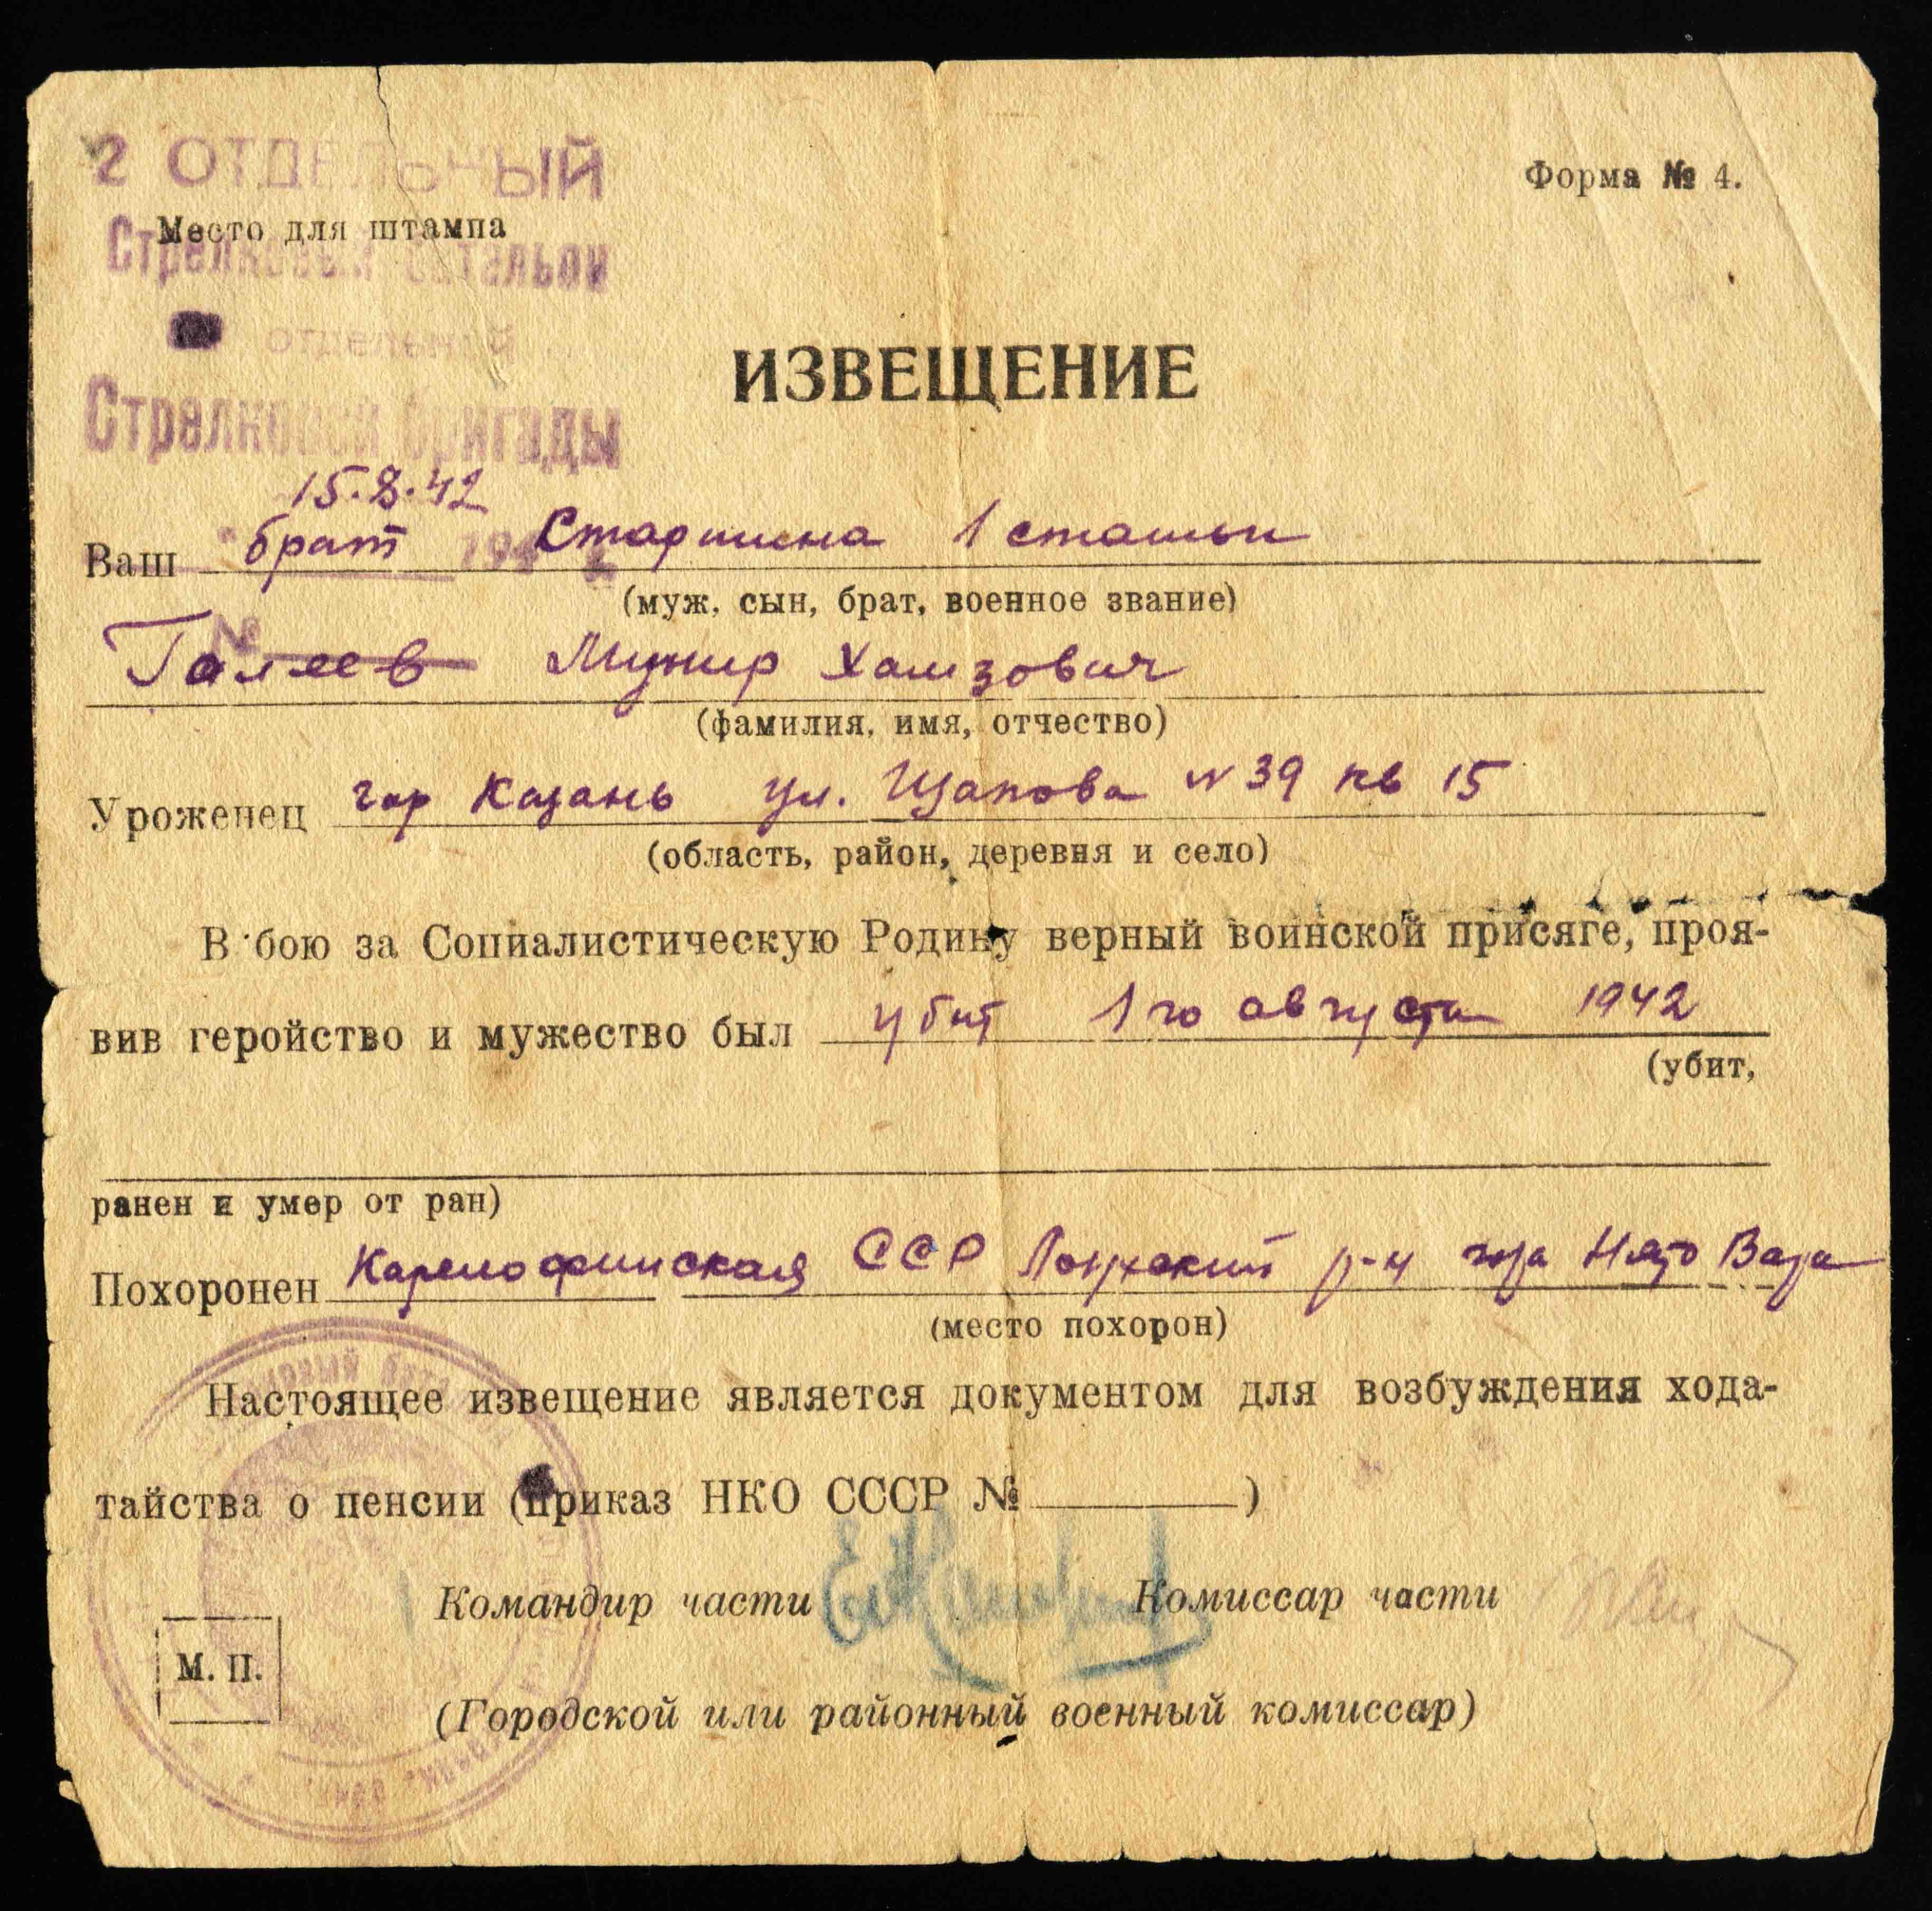 2 ОТДЕЛЬНЫЙ
Форма № 4.
Место для штампа
Стрелковый батальон
отдельной
ИЗВЕЩЕНИЕ
Стрелковой бригады
15.8.42
Ваш брат Старшина 1 статьи
(муж, сын, брат, военное звание)
№
Галеев Мунир Хаизович
(фамилия, имя, отчество)
Уроженец гор Казань ул. Щапова N 39 кв 15
(область, район, деревня и село)
В бою за Социалистическую Родину верный воинской присяге, проя-
вив геройство и мужество был убит 1го августа 1942
(убит,
ранен и умер от ран)
Похоронен Карелофинская ССР Лоухский р-н гора Нято Вара
(место похорон)
Настоящее извещение является документом для возбуждения хода-
тайства о пенсии (приказ НКО СССР № )
Командир части Комиссар части
М. П.
(Городской или районный военный комиссар)